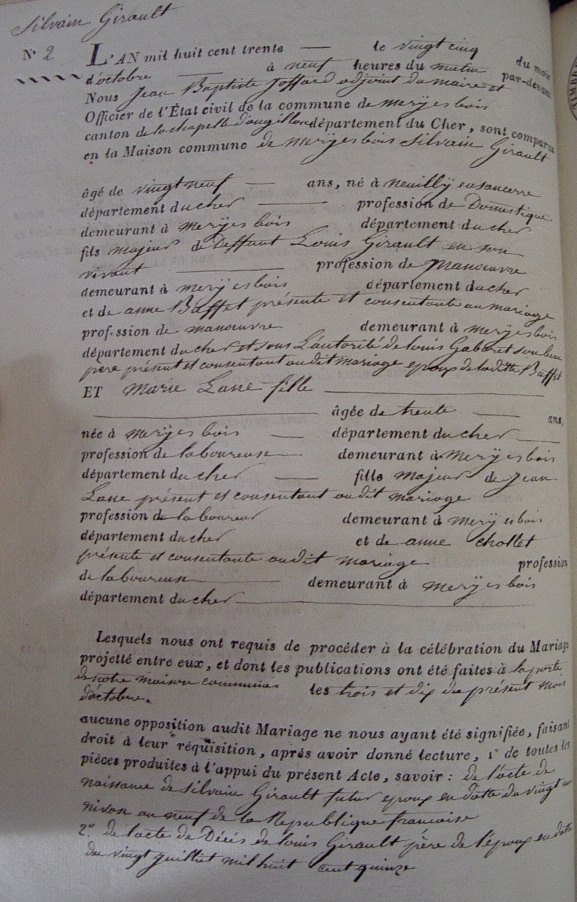 Silvain Girault
N° 2
L'AN mil huit cent trente — le vingt cinq du mois
d'octobre — à neuf heures du matin par-devant
Nous Jean Baptiste Joffard adjoint du maire et
Officier de l'État civil de la commune de meryes bois
canton de la chapelle d'angillon département du Cher, sont comparus
en la Maison commune de meryes bois Silvain Girault
âgé de vingt neuf — ans, né à neuilly en sancerre
département du cher — profession de Domestique
demeurant à meryes bois département du cher
fils majeur de deffunt Louis Girault en son
vivant — profession de manœuvre
demeurant à meryes bois département du cher
et de anne Baffet présente et consentante au mariage
profession de manœuvre demeurant à meryes bois
département du cher et sous L'autorité de louis Gaboret son beau
père présent et consentant au dit mariage epoux de la ditte Baffet
ET Marie Lasne fille —
— âgée de trente — ans,
née à meryes bois — département du cher —
profession de laboureuse demeurant à meryes bois
département du cher — fille majeur de Jean
Lasne présent et consentant au dit mariage
profession de laboureur demeurant à meryes bois
département du cher et de anne chollet
présente et consentante au dit mariage profession
de laboureuse — demeurant à meryes bois
département du cher —
Lesquels nous ont requis de procéder à la célébration du Mariage
projetté entre eux, et dont les publications ont été faites à la porte
de notre maison commune les trois et dix du présent mois
d'octobre.
aucune opposition audit Mariage ne nous ayant été signifiée, faisant
droit à leur réquisition, après avoir donné lecture, 1° de toutes les
pièces produites à l'appui du présent Acte, savoir : de l'acte de
naissance de Silvain Girault futur epoux en datte du vingt un
nivose an neuf de la République francoise
2° de l'acte de Décès de louis Girault père de l'époux en datte
du vingt juillet mil huit cent quinze